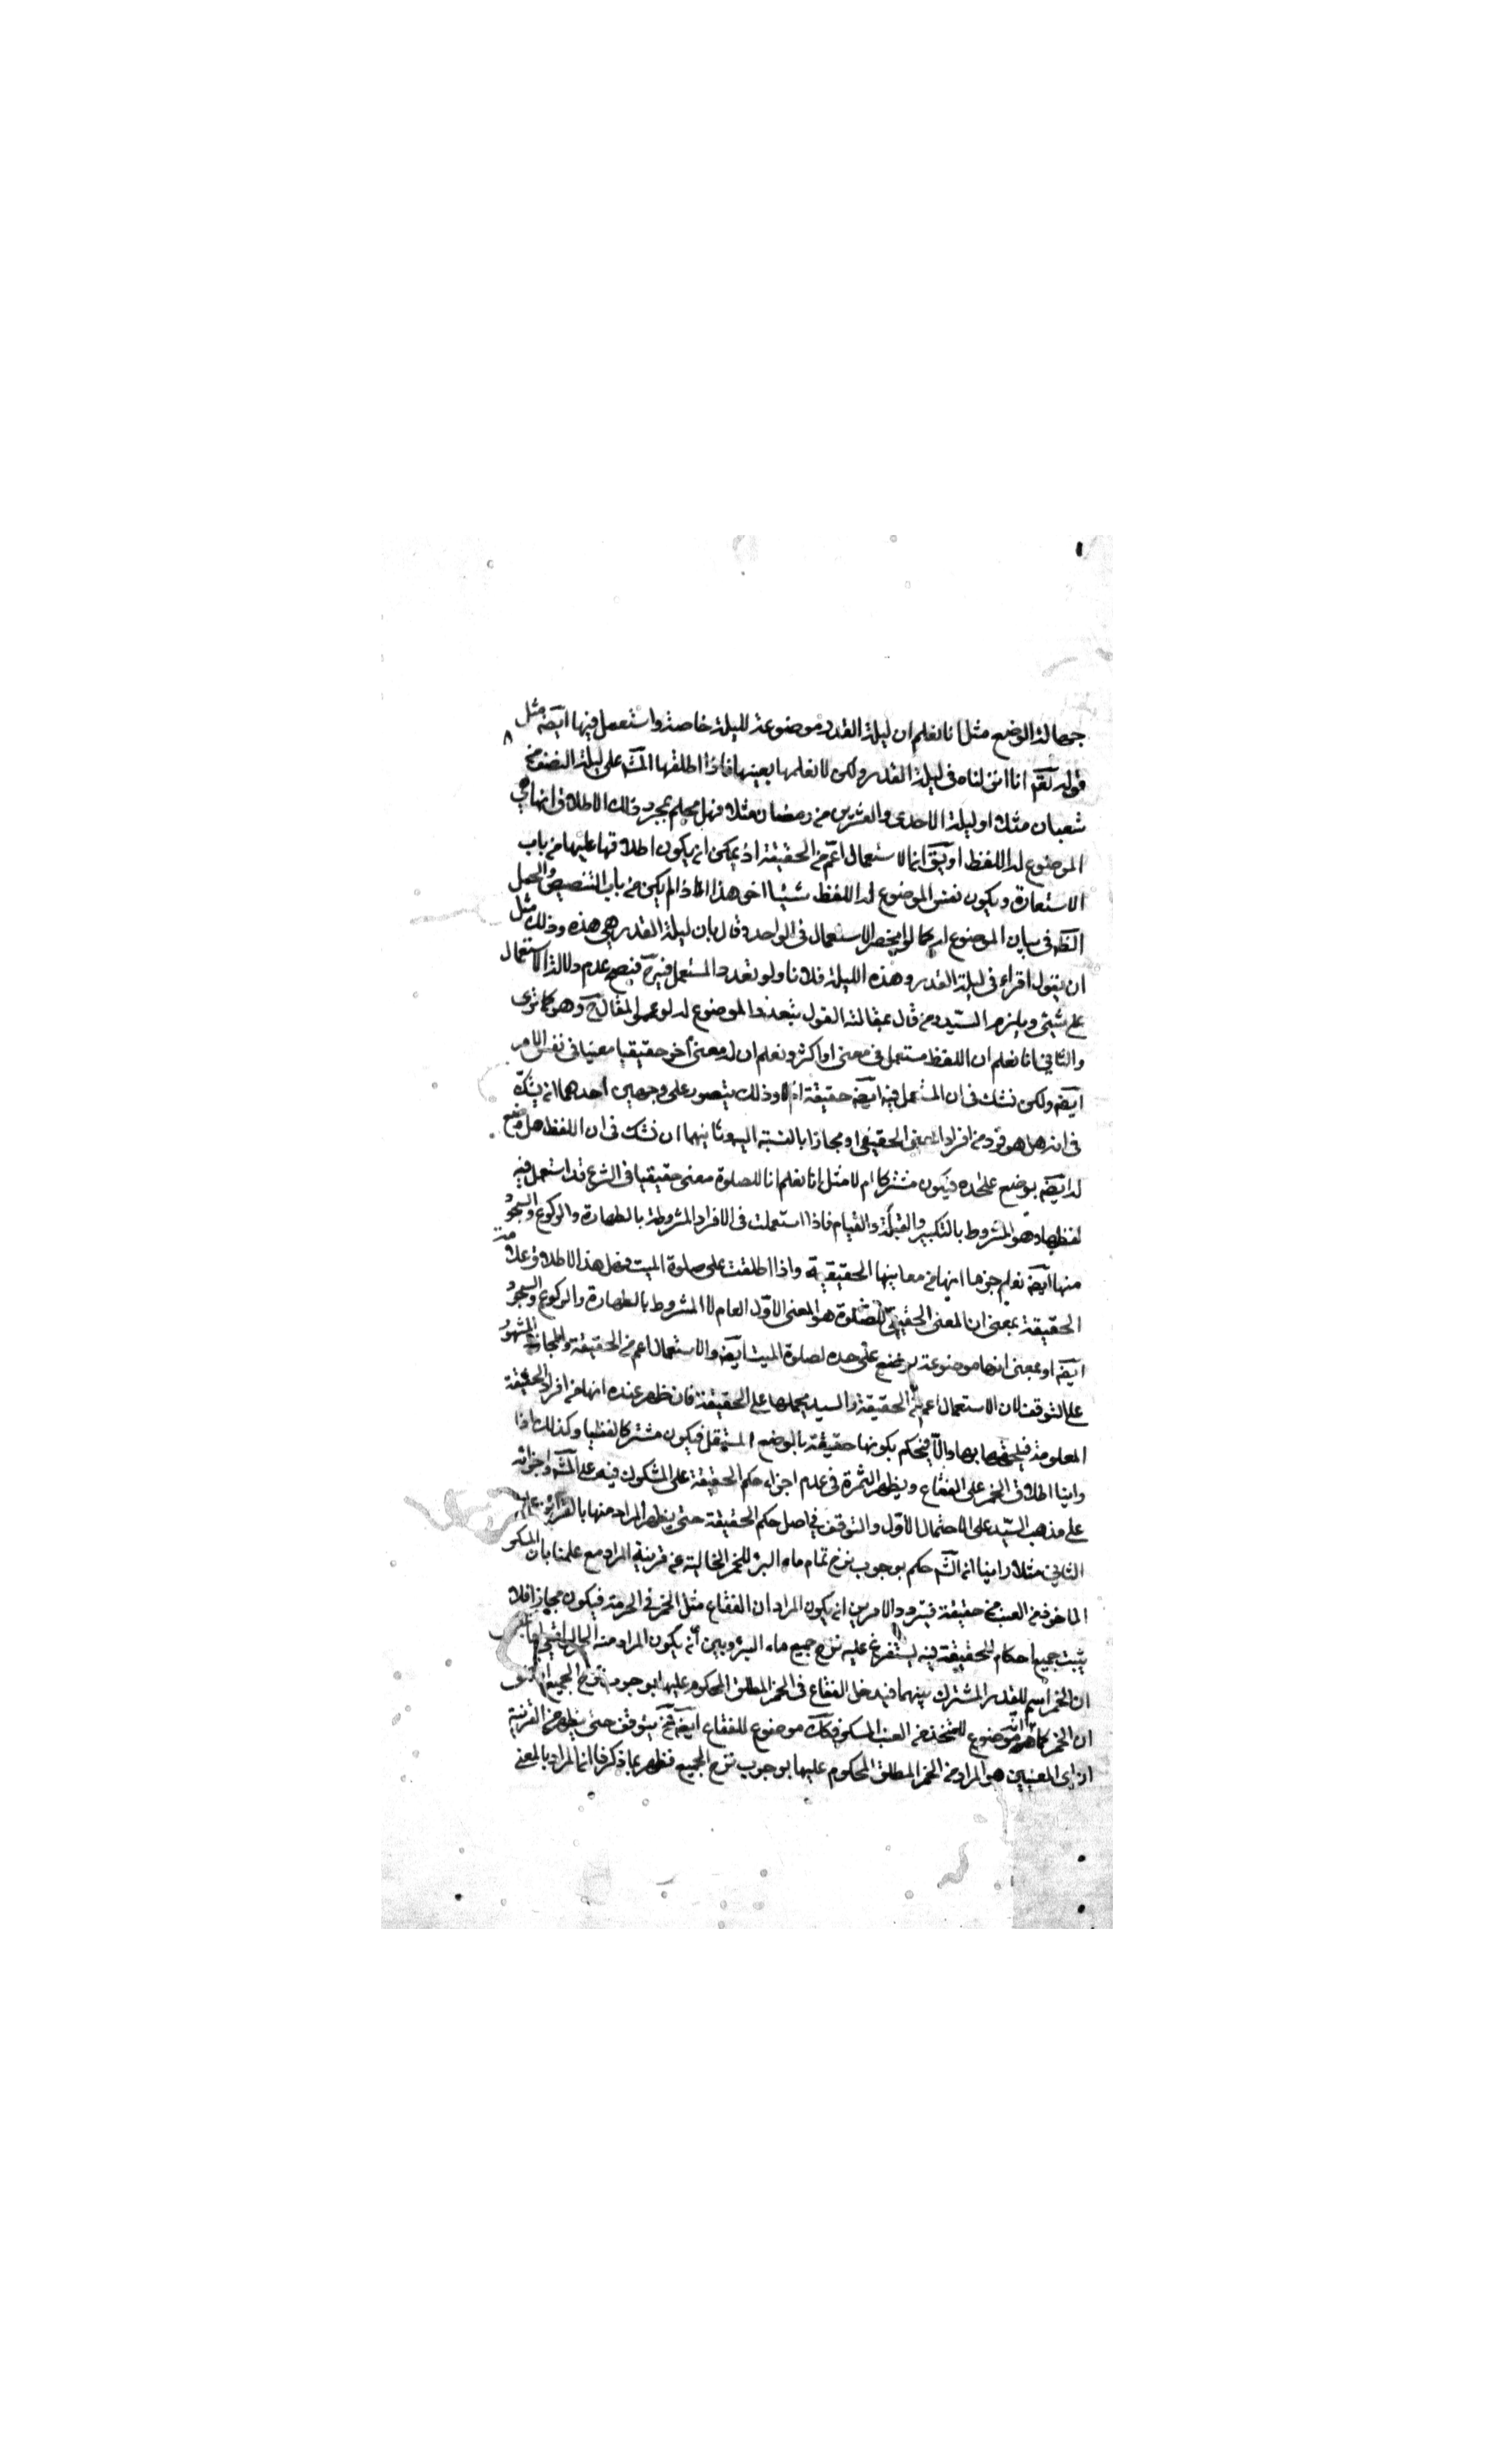 جهالة الوضع مثل انا نعلم ان ليلة القدر موضوعة لليلة خاصة واستعمل فيها ايضه مثل
قوله تعم انا انزلناه فى ليلة القدر ولكن لا نعلمها بعينها فاذا اطلقها الش على ليلة النصف من
شعبان مثلا او ليلة الاحدى والعشرين من رمضان مثلا فهل يحكم بمجرد ذلك الاطلاق انها هي
الموضوع له اللفظ او يق ان الاستعمال اعم من الحقيقة اذ يمكن ان يكون اطلاقها عليها من باب
الاستعارة ويكون نفس الموضوع له اللفظ شيئا اخر هذا اذا لم يكن من باب التنصيص والحمل
الظ فى بيان الموضوع له كما لو انحصر الاستعمال فى الواحد وقال بان ليلة القدر هي هذه وذلك مثل
ان يقول اقراء فى ليلة القدر وهذه الليلة فلانا ولو تعدد المستعمل فيه ح فنصح عدم دلالة الاستعمال
على شيئ ويلزم السيد ومن قال بمقالته القول بتعدد الموضوع له لو عمموا المقال ح وهو كما ترى
والثاني انا نعلم ان اللفظ مستعمل فى معنى او اكثر ونعلم ان له معنى اخر حقيقيا معينا فى نفس الامر
ايضه ولكن نشك فى ان المستعمل فيه ايضه حقيقة ام لا وذلك يتصور على وجهين احدهما ان يشك
فى انه هل هو فرد من افراد المعنى الحقيقي او مجازا بالنسبة اليه وثانيهما ان نشك فى ان اللفظ هل وضع
له ايضه بوضع عليحده فيكون مشتركا ام لا مثل انا نعلم ان للصلوة معنى حقيقيا فى الشرع قد استعمل فيه
لفظها وهو المشروط بالتكبير والقبلة والقيام فاذا استعملت فى الافراد المشروطة بالطهارة والركوع والسجود
منها ايضه نعلم جزما انها من معانيها الحقيقية واذا اطلقت على صلوة الميت فهل هذا الاطلاق علامة
الحقيقة بمعنى ان المعنى الحقيقي للصلوة هو المعنى الاول العام لا المشروط بالطهارة والركوع والسجود
ايضه او بمعنى انها موضوعة بوضع على حده لصلوة الميت ايضه والاستعمال اعم من الحقيقة والمجاز المشهور
على التوقف لان الاستعمال اعم من الحقيقة والسيد يحملها على الحقيقة فان ظهر عنده انها من افراد الحقيقة
المعلومة فيلحقها بها والا فيحكم بكونها حقيقة بالوضع المستقل فيكون مشتركا لفظيا وكذلك اذا
راينا اطلاق الخمر على الفقاع ويظهر الثمرة فى عدم اجراء حكم الحقيقة على المشكوك فيه على المش واجرائه
على مذهب السيد على الاحتمال الاول والتوقف فى اصل حكم الحقيقة حتى يظهر المراد منها بالقرائن على
الثاني مثلا راينا ان الش حكم بوجوب نزح تمام ماء البئر للخمر الخالية عن قرينة المراد مع علمنا بان المسكر
الماخوذ من العنب خمر حقيقة فيتردد الامر بين ان يكون المراد ان الفقاع مثل الخمر فى الحرمة فيكون مجازا فلا
يثبت جميع احكام الحقيقة فيه ليستفرغ عليه نزح جميع ماء البئر وبين ان يكون المراد منه
ان الخمر اسم للقدر المشترك بينهما فيدخل الفقاع فى الخمر المطلق المحكوم عليها بوجوب نزح الجميع
ان الخمر كما انه موضوع للمتخذ من العنب المسكر فكك موضوع للفقاع ايضه فح يتوقف حتى يظهر من القرينة
ان اى المعنيين هو المراد من الخمر المطلق المحكوم عليها بوجوب نزح الجميع فظهر بما ذكرنا ان المراد بالمعنى